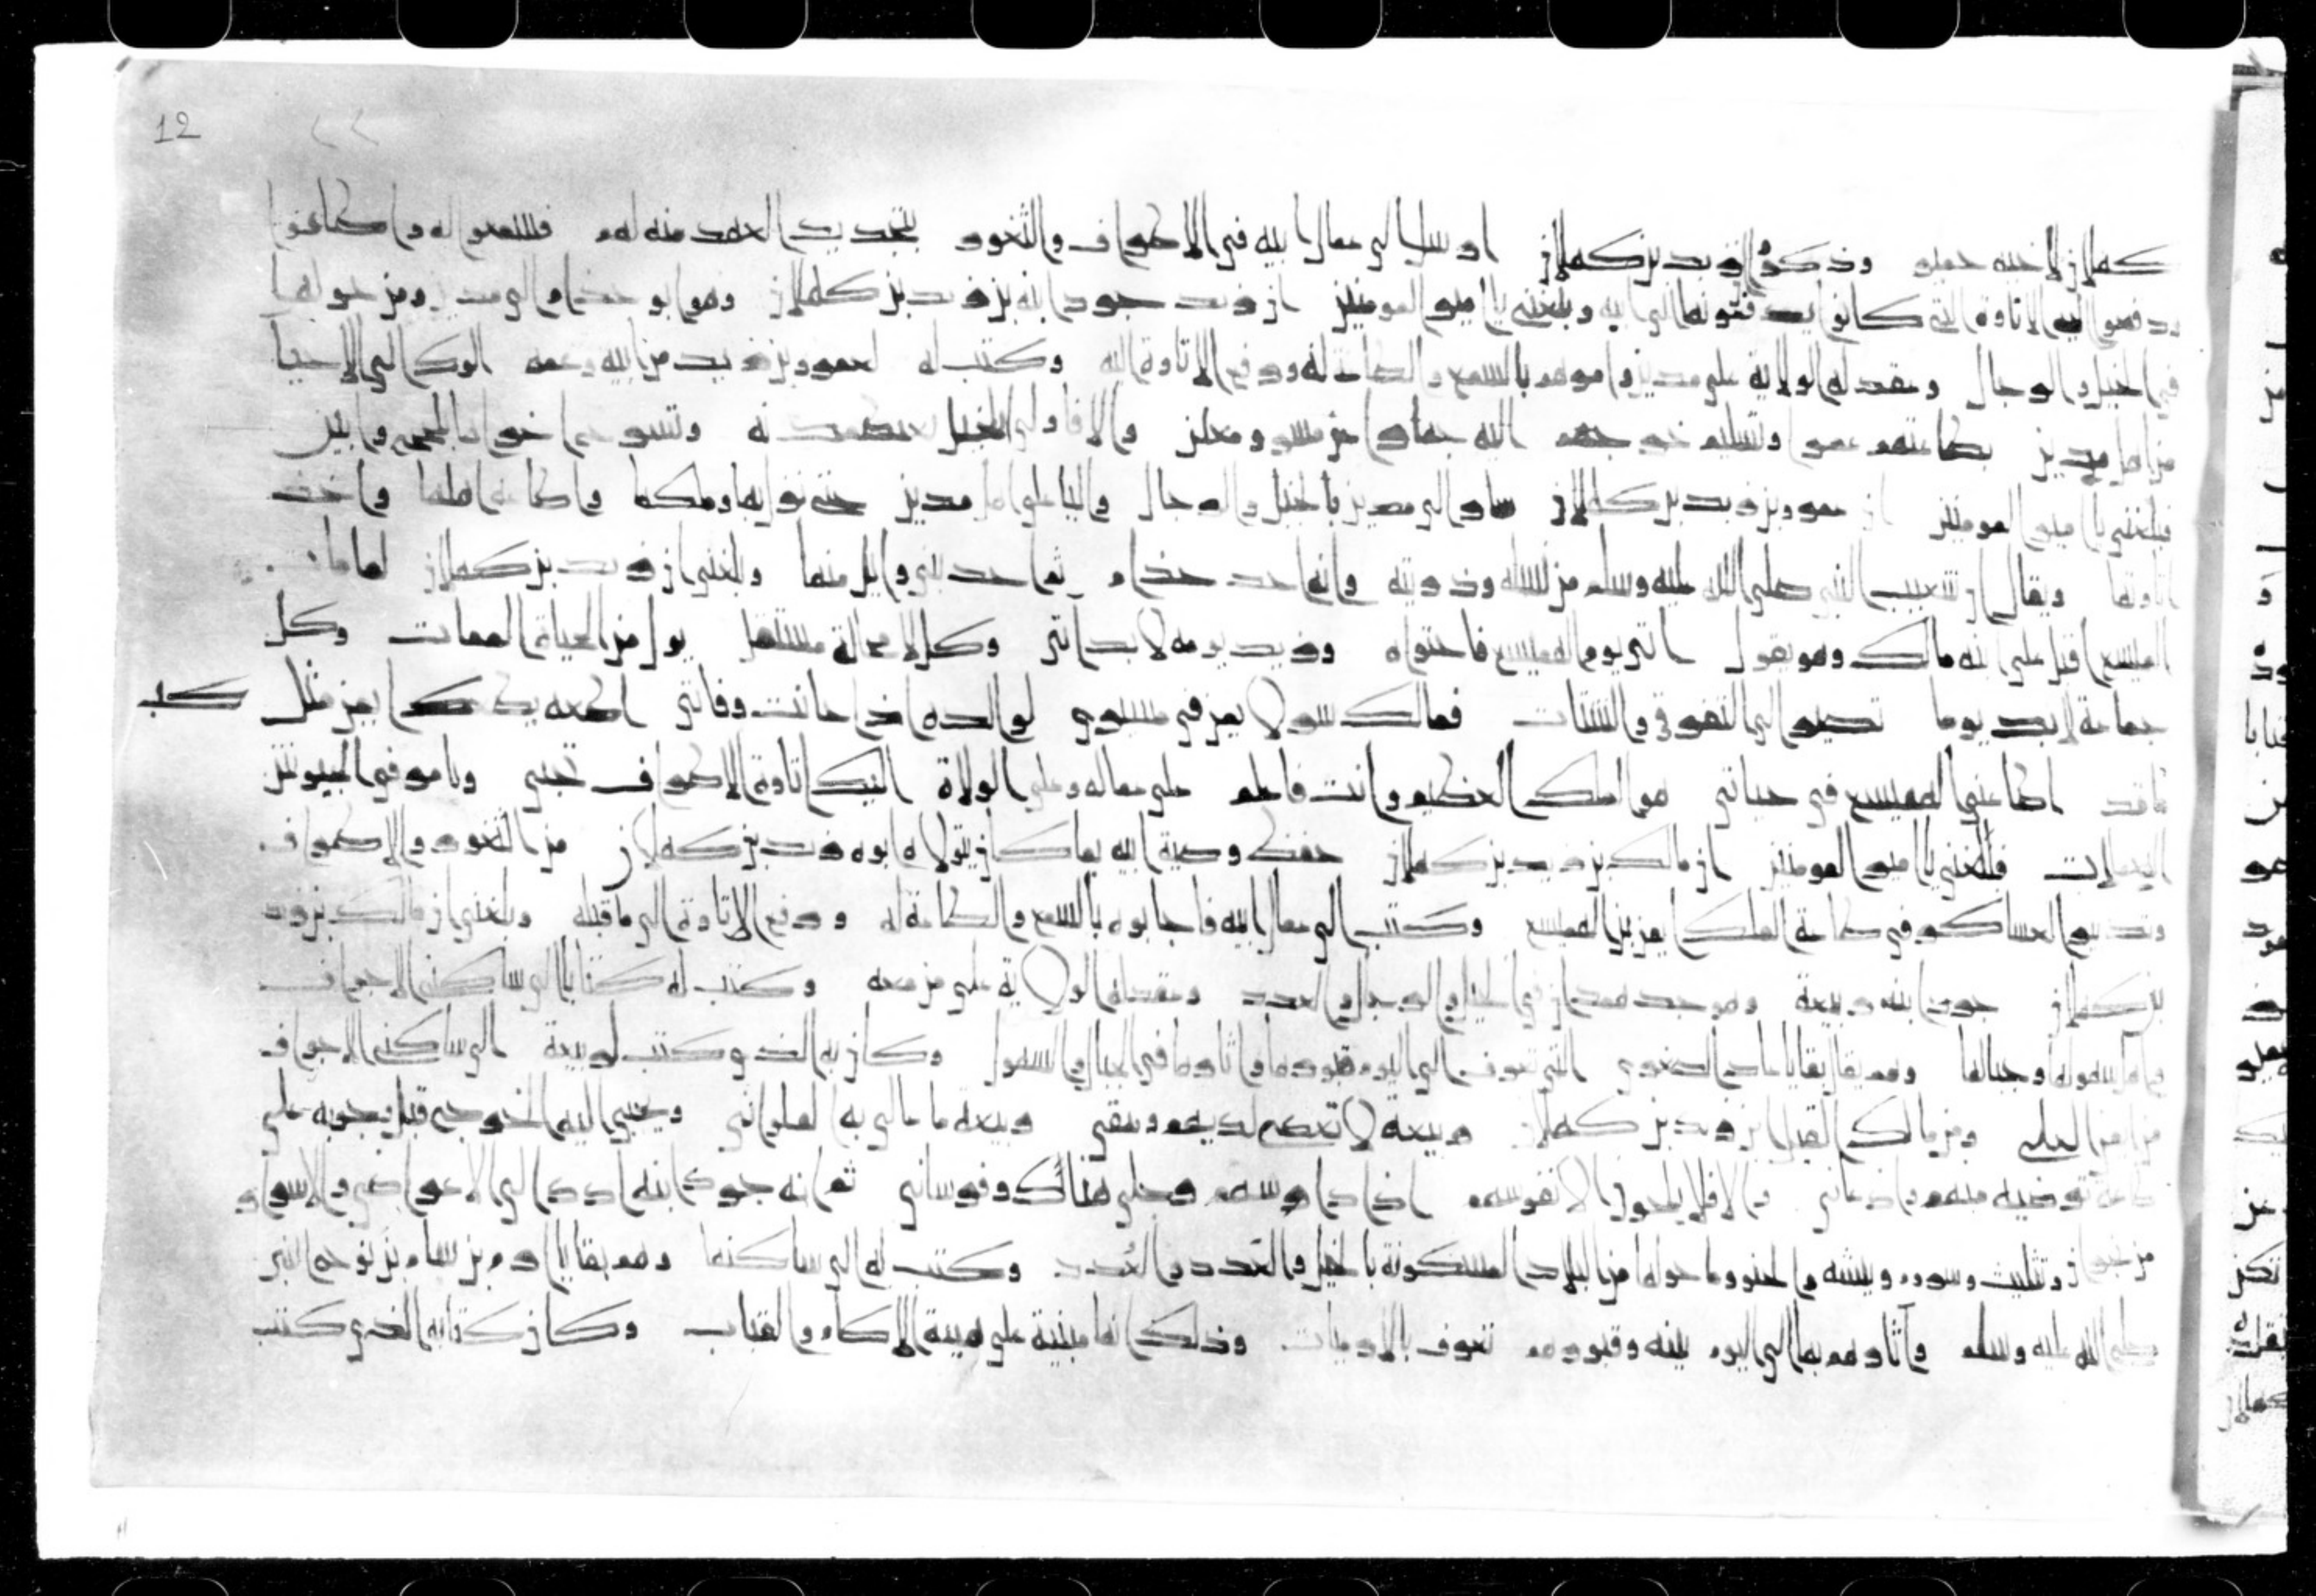 12
كهلان لاخيه حمير وذكروا ان زيد بن كهلان ارسل الى عمال ابيه في الاطراف والثغور بتجديد العهد منه لهم فسمعوا له واطاعوا
ودفعوا اليه الاتاوة التي كانوا يدفعونها الى ابيه وبلغني يا امير المومنين ان زيد جرد ابنه بن زيد بن كهلان وهو ابو جذام الى مدين ومن حولها
في الخيل والرجال وعقد له الولاية على مدين وامرهم بالسمع والطاعة له ودفع الاتاوة اليه وكتب له لعمرو بن زيد من ابيه وعمه الوك الى الاحيا
من اهل مدين بطاعتهم عمرا وتسليم خرجهم اليه جهارا من مسر ومعلن والا فاولى الخيل
فبلغني يا امير المومنين ان عمرو بن زيد بن كهلان سار الى مدين بالخيل والرجال واليا على اهل مدين حتى نزل بها وملكها واطاعه اهلها واخذ
اتاوتها ويقال ان شعيب النبي صلى الله عليه وسلم من نسله وذريته وانه احد جذام ثم احد بني وايل منها وبلغني ان زيد بن كهلان لما مات
الهميسع اقبل على ابنه مالك وهو يقول اتى يوم الهميسع فاحتواه وزيد يومه لا بد اتي وكل لا محالة مستقل يول من الحياة الى الممات وكل
جماعة لا بد يوما تصير الى التفرق والشتات فمالك سر لايمن في مسيري لوالده اذا حانت وفاتي اطعه يطعك ايمن مثل كـ
ما قد اطاعني الهميسع في حياتي هو الملك العظيم وانت فاعلم على عماله وعلى الولاة اليك اتاوة الاطراف تجبى وتامر في
اليعملات فبلغني يا امير المومنين ان مالك بن زيد بن كهلان حفظ وصية ابيه بما كان يتولاه ابوه زيد بن كهلان من الثغور والاطراف
وتدبير العساكر في طاعة الملك ايمن بن الهميسع وكتب الى عمال ابيه فاجابوه بالسمع والطاعة له ودفع الاتاوة الى ما قبله وبلغني ان مالك بن زيد
بن كهلان جرد ابنه ربيعة وهو جد همدان في الخيل والرجل والعدد وعقد له الولاية على من معه وكتب له كتابا الى ساكني الاجواف
واهل سهولها وجبالها وهم يقال بقايا عاد الصغرى التي تعرف الى اليوم قبورها واثارها في الجبال والسهول وكان به الذي كتب لربيعة الى ساكني الاجواف
من امر العلى ومن مالك القيل ابن زيد بن كهلان ربيعة لا تعصى لديهم وتتقى ربيعة ما عالى به لعلواني ويجبي اليه الخرج قبل وجوبه على
طاعة ترضيه منهم واذعاني والا فلا يلحون الا نفوسهم اذا دارسهم رجلي هناك وفرساني ثم انه جرد ابنه ادد الى الاعراض والاسرار
من نجران وتثليث وسرو وبيشه والحنو وما حولها من البلاد المسكونة بالخيل والعدد والعُدد وكتب له الى ساكنها وهم بقايا ارم بن سام بن نوح النبي
صلى الله عليه وسلم وآثارهم بها الى اليوم بينه وقبورهم تعرف بالارميات وذلك انها مبنية على هيية الاكام والقباب وكان كتابه الذي كتب